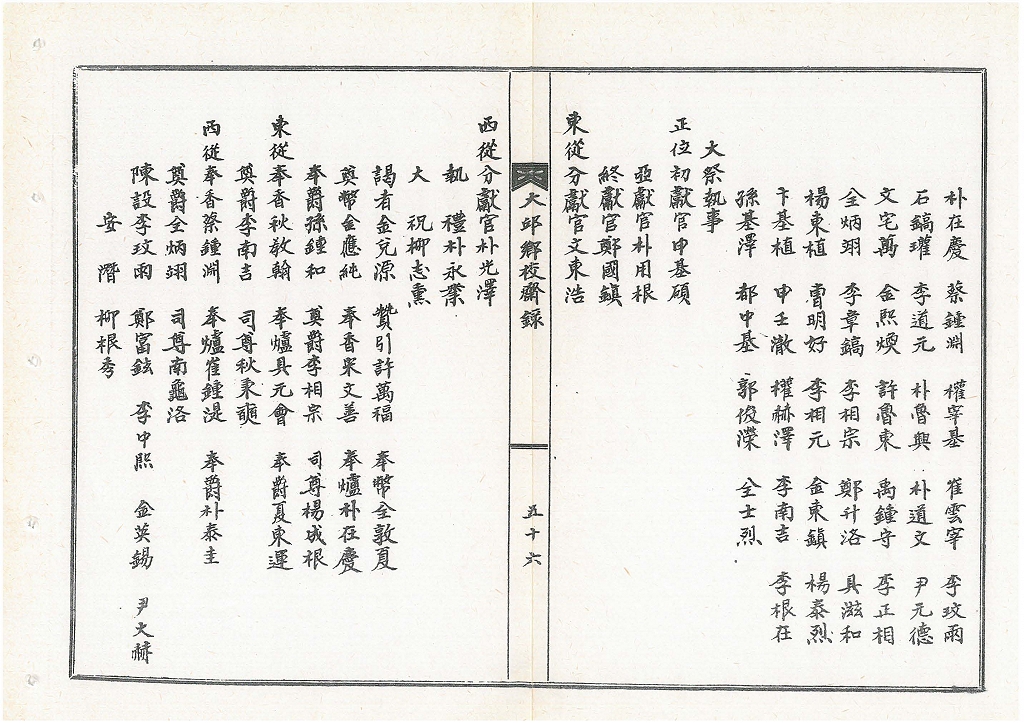 朴在慶 蔡鍾淵 權寧基 崔雲宰 李玟雨
石鎬瓘 李道元 朴魯興 朴道文 尹元德
文宅萬 金熙煥 許魯東 禹鍾守 李正相
全炳翊 李章鎬 李相宗 鄭升洛 具滋和
楊東植 曺明好 李相元 金東鎭 楊泰烈
卞基植 申壬澈 權赫澤 李南吉 李根在
孫基澤 都中基 郭俊濼 全士烈
大祭執事
正位初獻官申基碩
亞獻官朴用根
終獻官鄭國鎭
東從分獻官文東浩
大邱鄕校齋錄 五十六
西從分獻官朴光澤
執禮朴永業
大祝柳志薰
謁者金兌源 贊引許萬福 奉幣全敦夏
奠幣金應純 奉香宋文善 奉爐朴在慶
奉爵孫鍾和 奠爵李相宗 司尊楊成根
東從奉香秋敎翰 奉爐具元會 奉爵夏東運
奠爵李南吉 司尊秋秉
西從奉香蔡鍾淵 奉爐崔鍾湜 奉爵朴泰圭
奠爵全炳翊 司尊南龜洛
陳設李玟雨 鄭富鉉 李中熙 金英錫 尹大赫
安潛 柳根秀